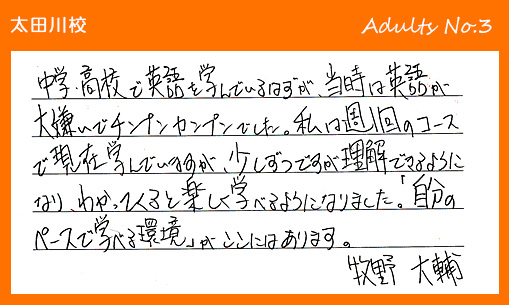 太田川校
Adults No.3
中学・高校で英語を学んでいるはずが、当時は英語が
大嫌いでチンプンカンプンでした。私は週1回のコース
で現在学んでいますが、少しずつですが理解できるように
なり、わかってくると楽しく学べるようになりました。「自分の
ペースで学べる環境」がここにはあります。
牧野 大輔